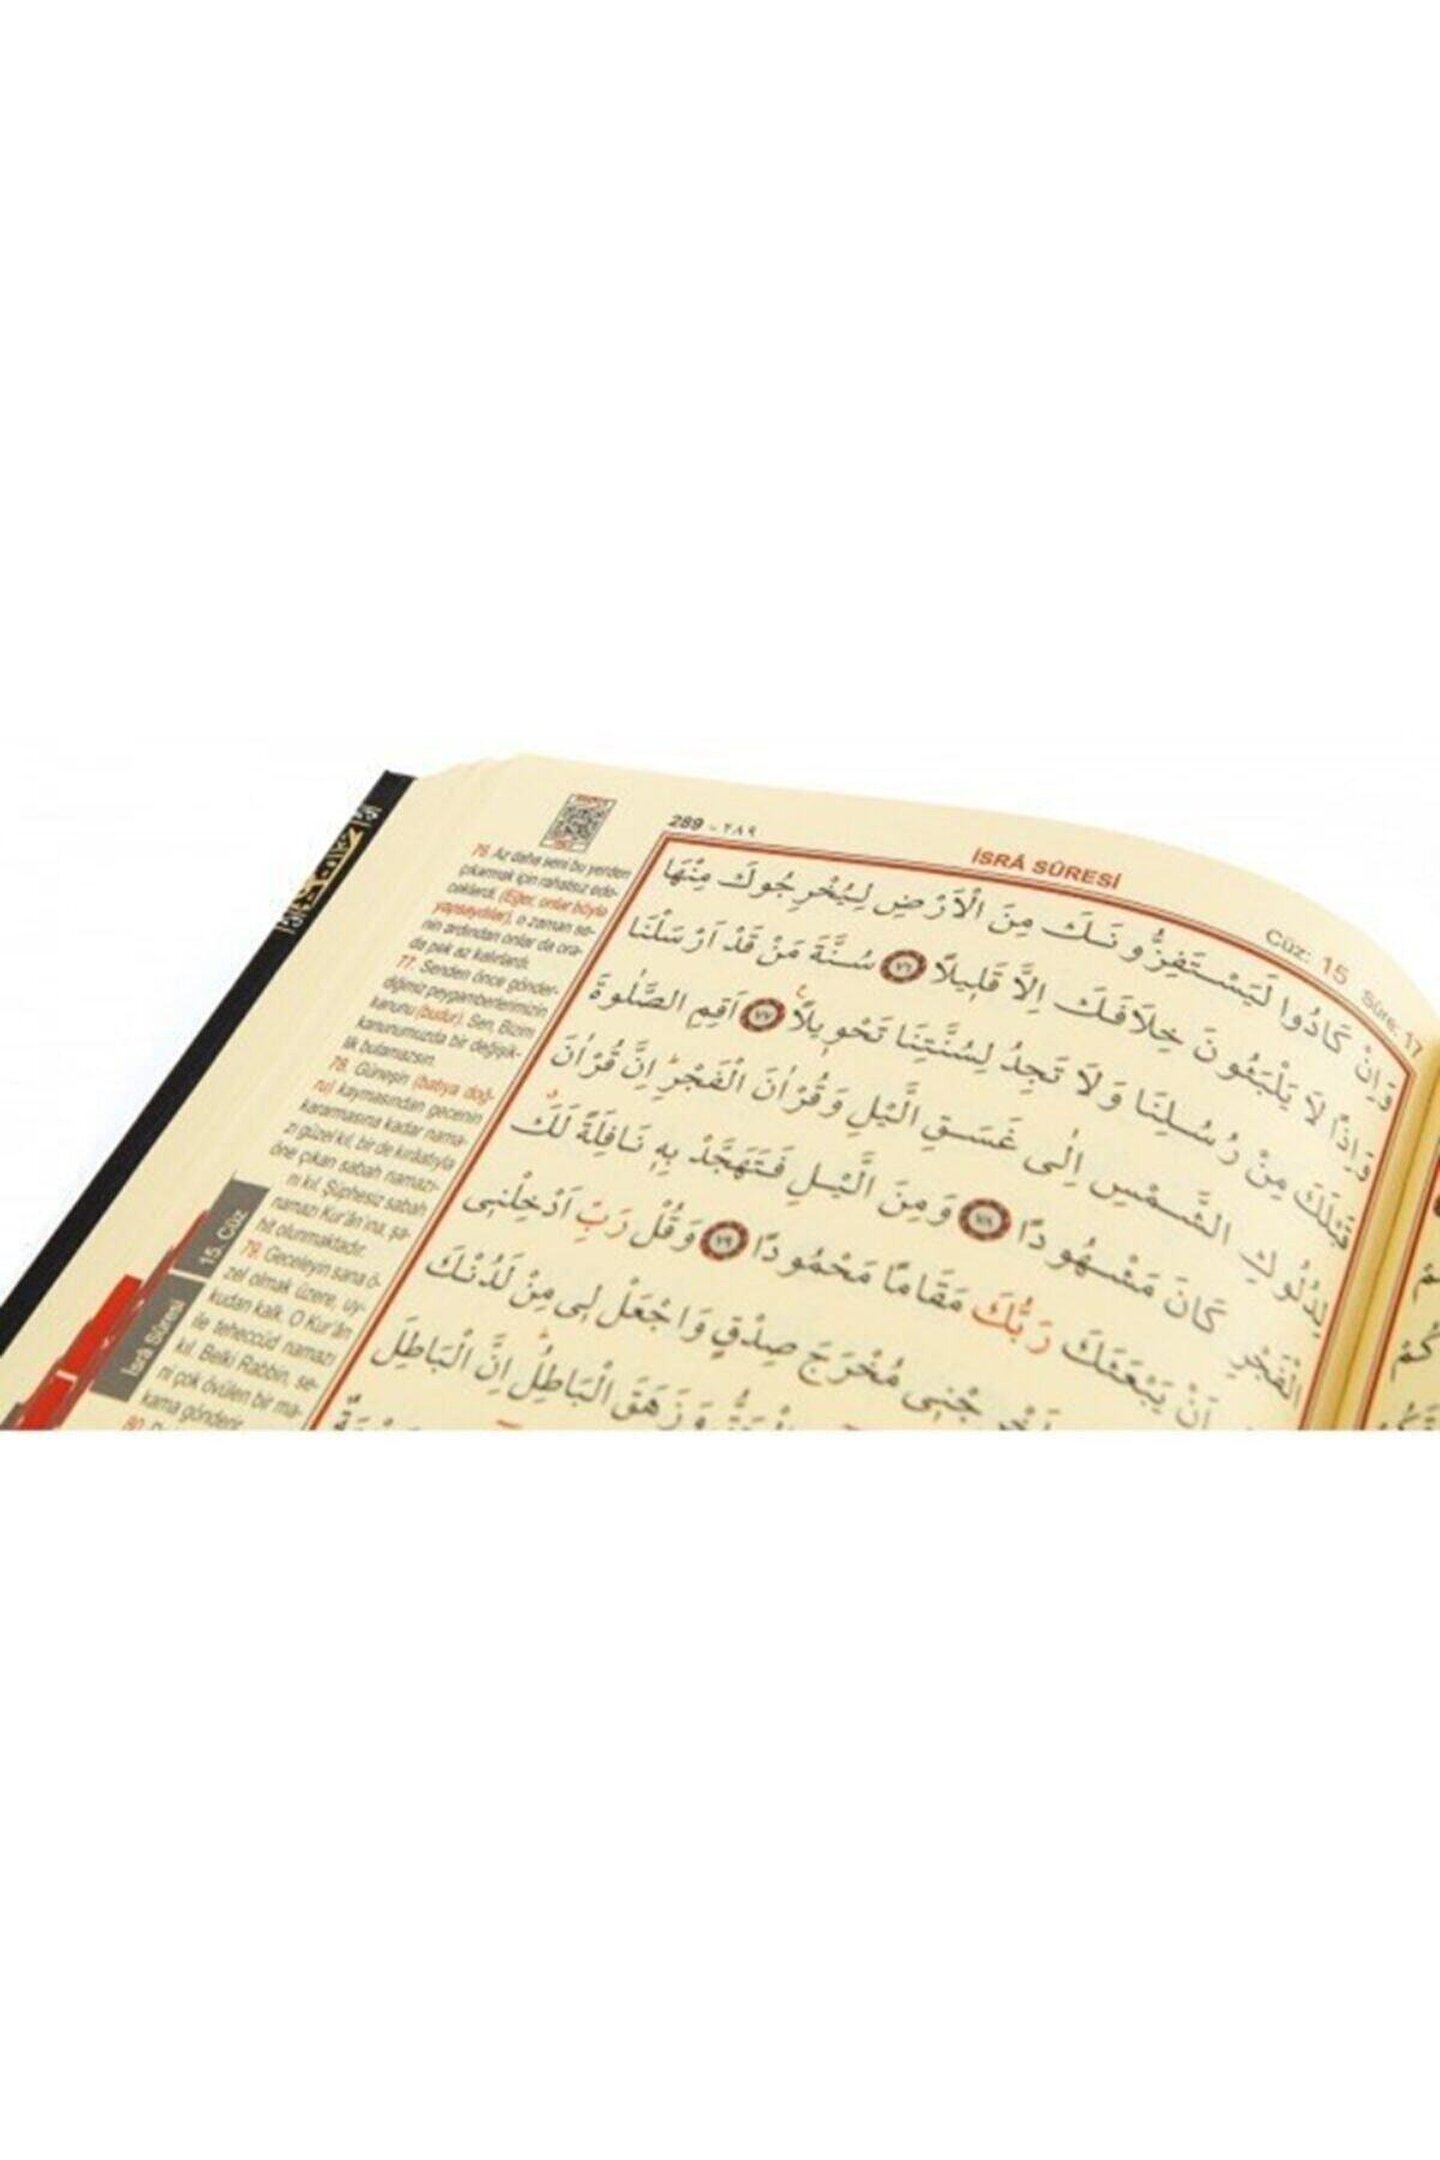 289 - ٢٨٩
İSRÂ SÛRESİ
Cüz: 15 Sûre: 17
وَاِنْ كَادُوا لَيَسْتَفِزُّونَكَ مِنَ الْاَرْضِ لِيُخْرِجُوكَ مِنْهَا
وَاِذًا لَا يَلْبَثُونَ خِلَافَكَ اِلَّا قَلٖيلًا ٧٦ سُنَّةَ مَنْ قَدْ اَرْسَلْنَا
قَبْلَكَ مِنْ رُسُلِنَا وَلَا تَجِدُ لِسُنَّتِنَا تَحْوٖيلًا ٧٧ اَقِمِ الصَّلٰوةَ
لِدُلُوكِ الشَّمْسِ اِلٰى غَسَقِ الَّيْلِ وَقُرْاٰنَ الْفَجْرِ اِنَّ قُرْاٰنَ
الْفَجْرِ كَانَ مَشْهُودًا ٧٨ وَمِنَ الَّيْلِ فَتَهَجَّدْ بِهٖ نَافِلَةً لَكَ
اَنْ يَبْعَثَكَ رَبُّكَ مَقَامًا مَحْمُودًا ٧٩ وَقُلْ رَبِّ اَدْخِلْنٖى
جْنٖى مُخْرَجَ صِدْقٍ وَاجْعَلْ لٖى مِنْ لَدُنْكَ
وَزَهَقَ الْبَاطِلُ اِنَّ الْبَاطِلَ
76. Az daha seni bu yerden
çıkarmak için rahatsız ede-
ceklerdi. (Eğer, onlar böyle
yapsaydılar), o zaman se-
nin ardından onlar da ora-
da pek az kalırlardı.
77. Senden önce gönder-
diğimiz peygamberlerimizin
kanunu (budur). Sen, Bizim
kanunumuzda bir değişik-
lik bulamazsın.
78. Güneşin (batıya doğ-
ru) kaymasından gecenin
kararmasına kadar nama-
zı güzel kıl, bir de kırâatıyla
öne çıkan sabah namazı-
nı kıl. Şüphesiz sabah
namazı Kur'ân'ına, şa-
hit olunmaktadır.
79. Geceleyin sana ö-
zel olmak üzere, uy-
kudan kalk. O Kur'ân
ile teheccüd namazı
kıl. Belki Rabbin, se-
ni çok övülen bir ma-
kama gönderir.
80.
15. Cüz
İsrâ Sûresi